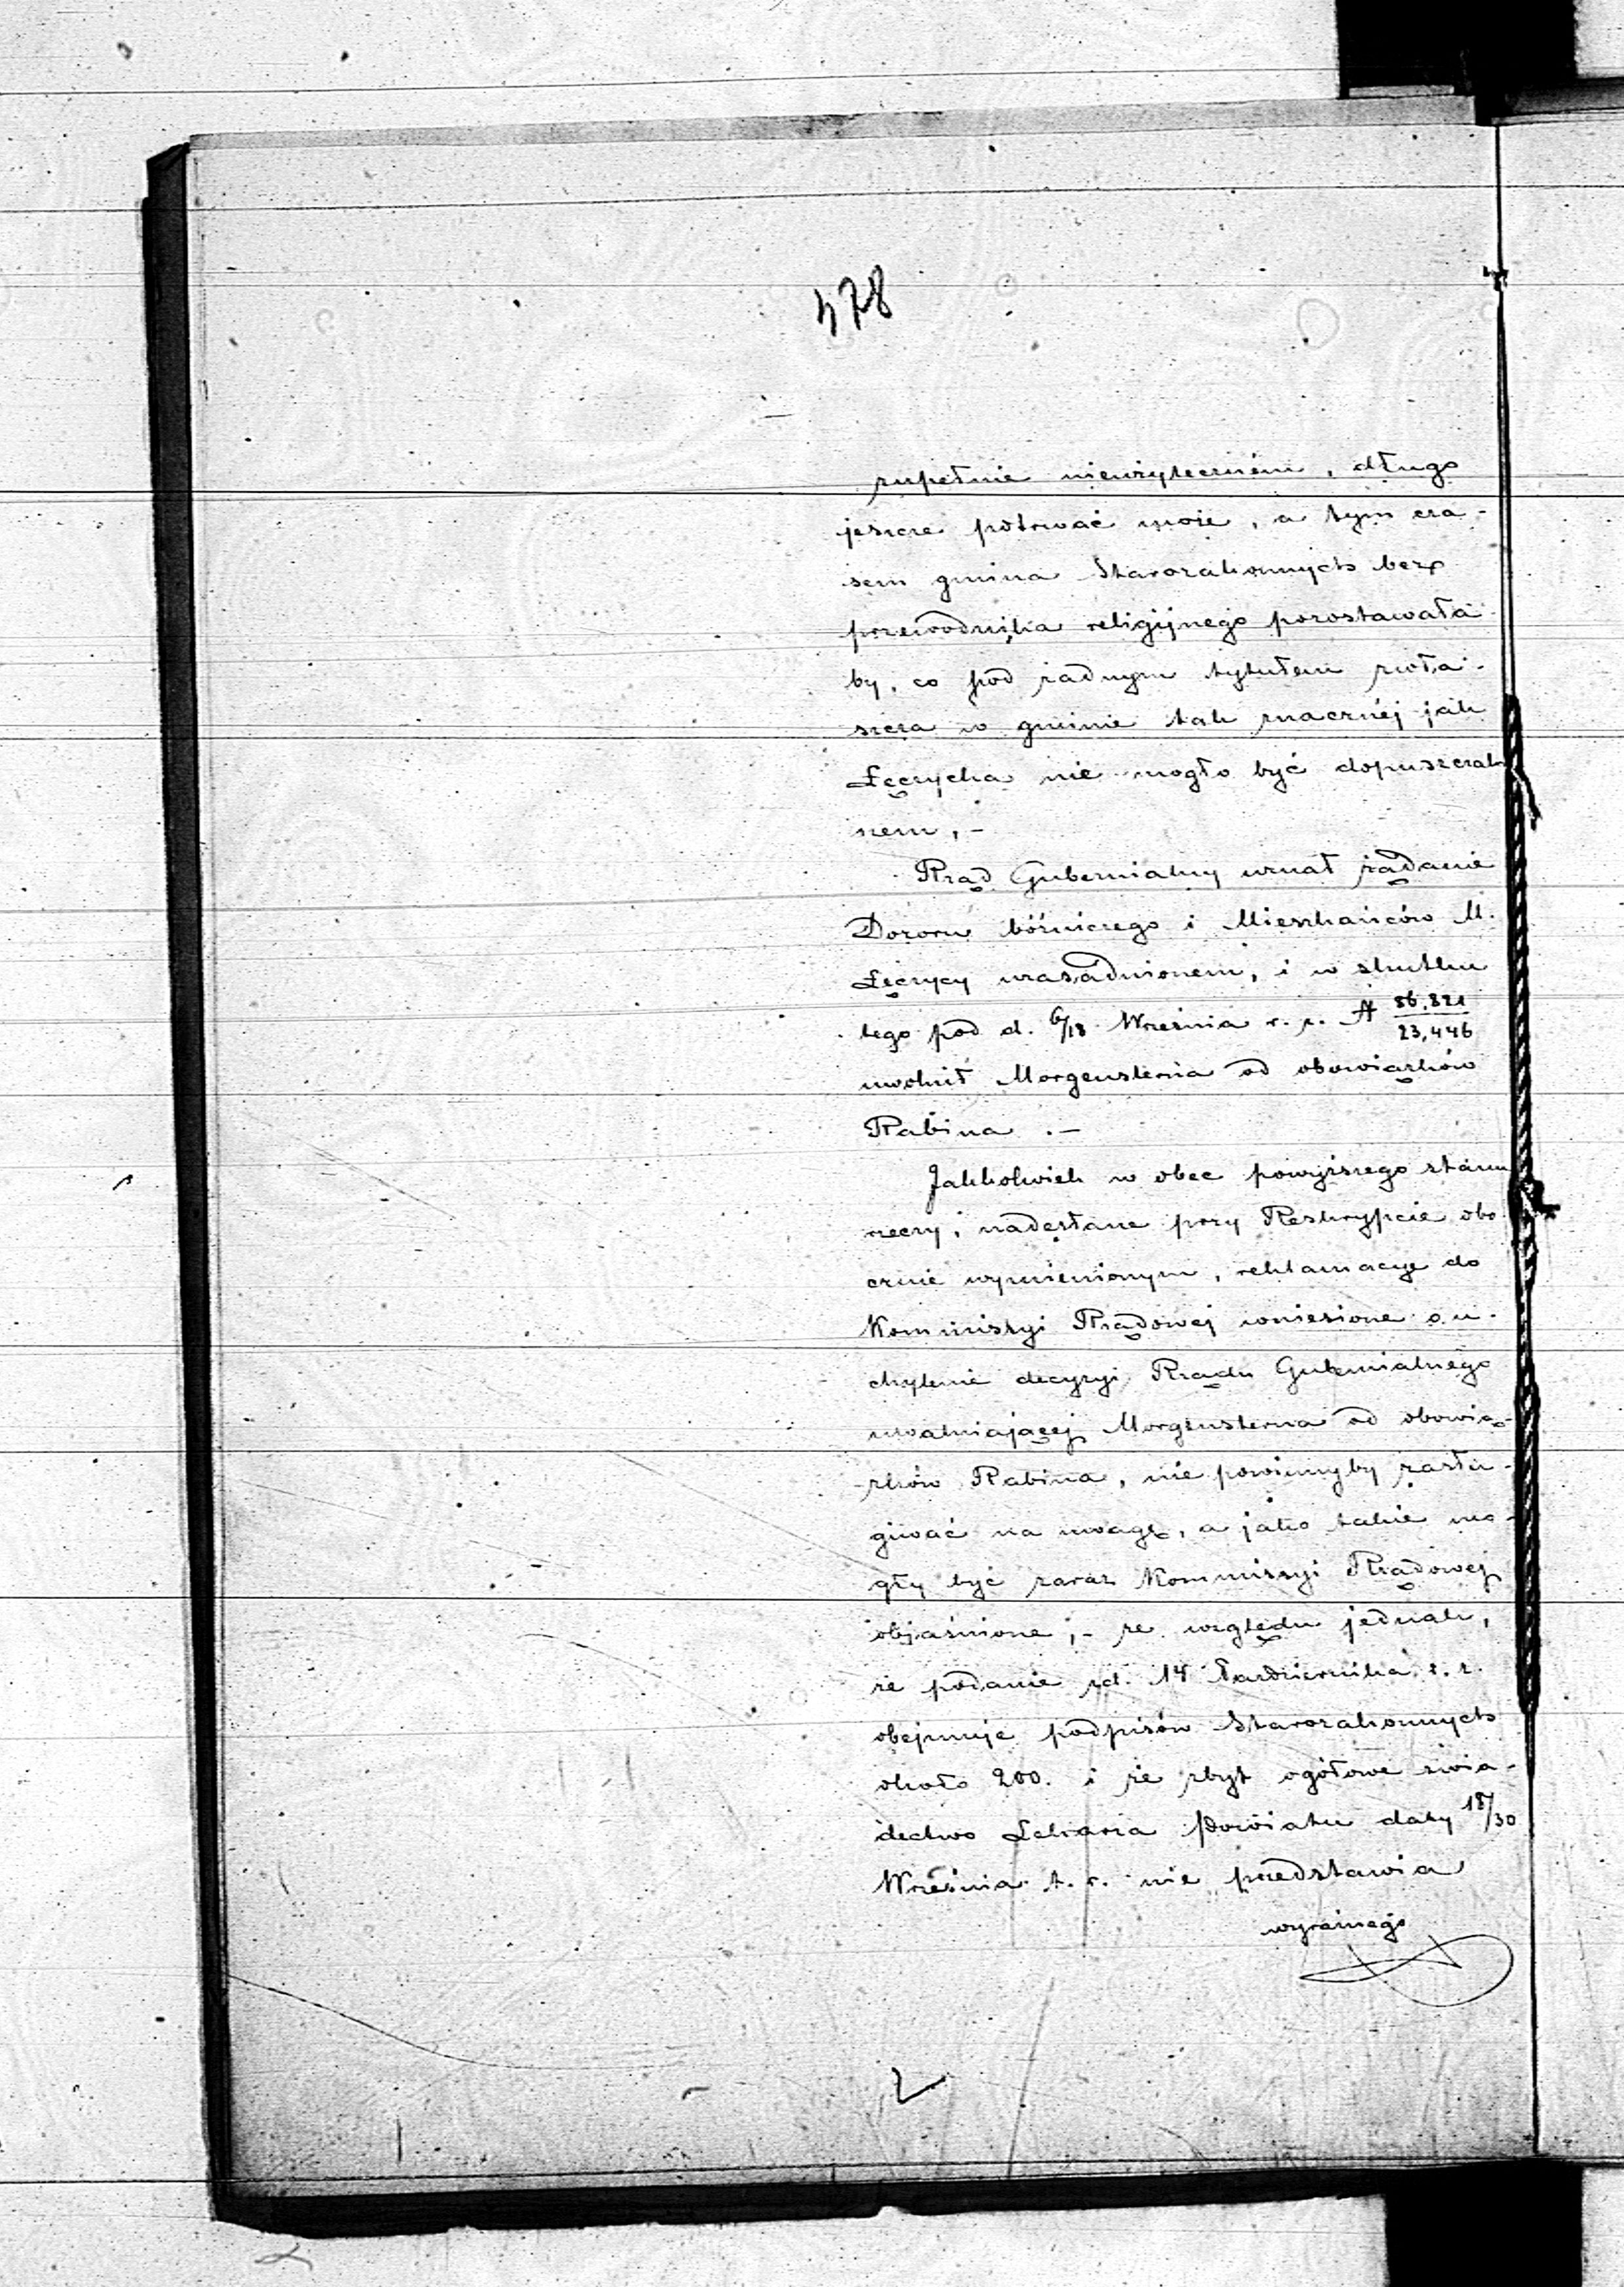 478
zupełnie nieużyteczném, długo
jeszcze potrwać może, a tym cza-
sem gmina Starozakonnych bez
przewodnika religijnego pozostawała
by, co pod żadnym tytułem zwła-
szcza w gminie tak znacznéj jak
Łęczycka nie mogło być dopuszczal
nem, -
Rząd Gubernialny uznał żądanie
Dozoru bóźniczego i Mieszkańców M.
Łęczycy uzasadnionem, i w skutku
tego pod d. 6/18 Września r. z. N 86,821/23,446
uwolnił Morgensterna od obowiązków
Rabina .-
Jakkolwiek w obec powyższego stanu
rzeczy, nadesłane przy Reskrypcie obo
cznie wymienionym, reklamacye do
Kommissyi Rządowej wniesione o u-
chylenie decyzyi Rządu Gubernialnego
uwalniającej Morgensterna od obowią-
zków Rabina, nie powinnyby zasłu-
giwać na uwagę, a jako takie mo-
gły być zaraz Kommissyi Rządowej
objaśnione, - ze względu jednak,
że podanie zd. 14 Października r. z.
obejmuje podpisów Starozakonnych
około 200. i że zbyt ogółowe świa-
dectwo Lekarza Powiatu daty 18/30
Września t. r. nie przedstawia
wyraźnego
2